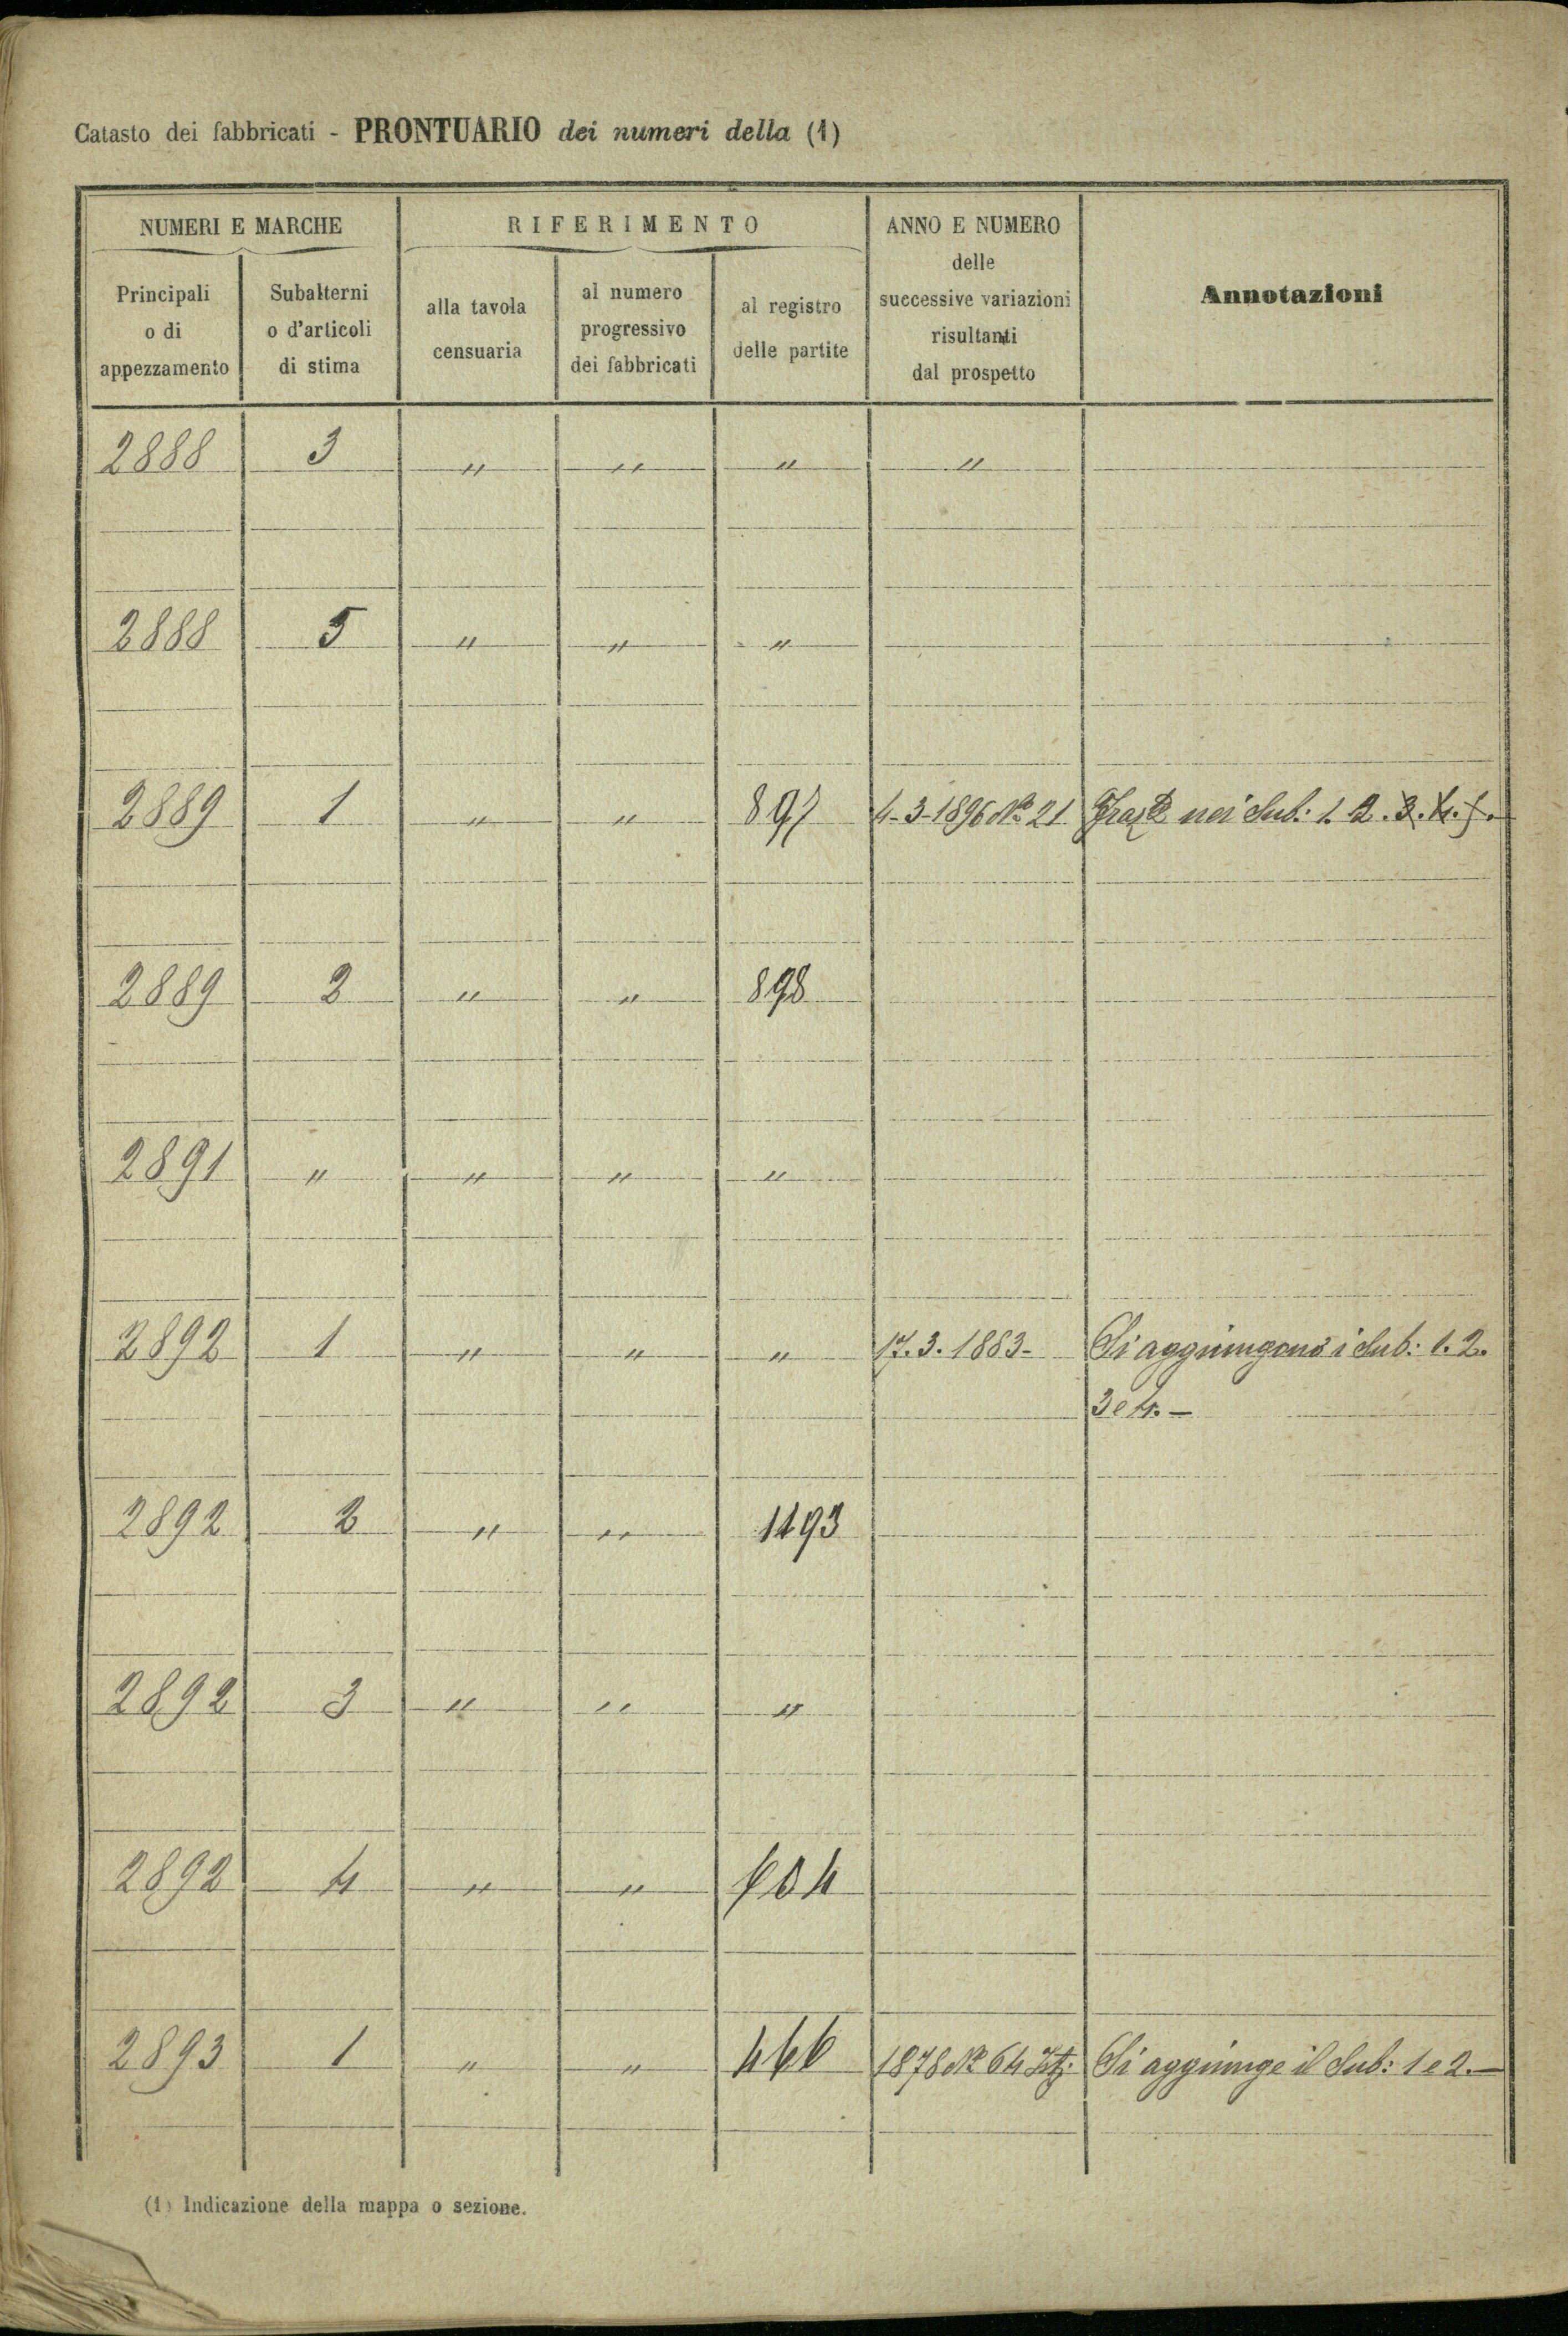 Catasto dei fabbricati - PRONTUARIO dei numeri della (1)
NUMERI E MARCHE
RIFERIMENTO
ANNO E NUMERO
delle
successive variazioni
risultanti
dal prospetto
Annotazioni
Principali
o di
appezzamento
Subalterni
o d'articoli
di stima
alla tavola
censuaria
al numero
progressivo
dei fabbricati
al registro
delle partite
2888 3 " " " "
2888 5 " " "
2889 1 " " 897 4-3-1896 N° 21 nei Sub: 1. 2. 3. 4. 5.
2889 2 " " 898
2891 " " " "
2892 1 " " " 17.3.1883- Si aggiungono i Sub: 1. 2.
3 e 4. —
2892 2 " " 1193
2892 3 " " "
2892 4 " " 604
2893 1 " " 466 1878 N° 64 Si aggiunge il Sub: 1 e 2. —
(1) Indicazione della mappa o sezione.